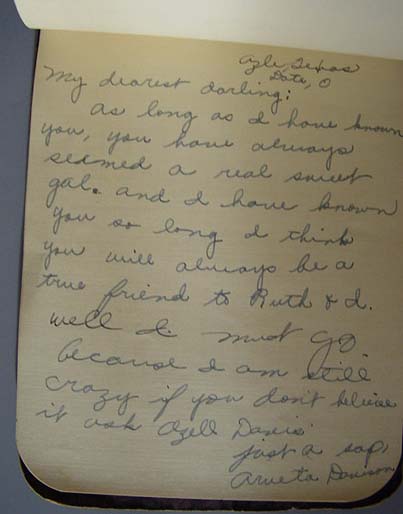 Azle, Texas
Date, O
My dearest darling:
As long as I have known
you, you have always
seemed a real sweet
gal. and I have known
you so long I think
you will always be a
true friend to Ruth & I.
well I must go
because I am still
crazy if you don't believe
it ask Ozell Davis
just a sap,
Arveta Davison